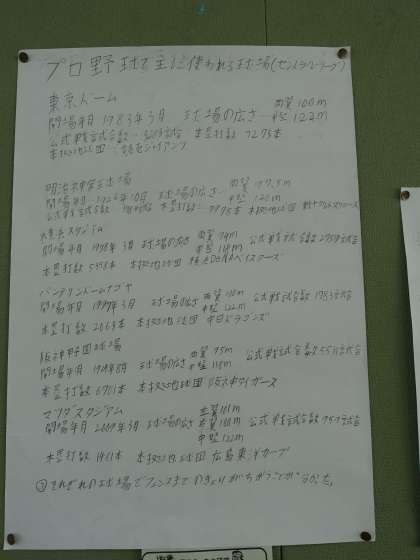 プロ野球で主に使われる球場(セントラルリーグ)
東京ドーム
両翼 100m
開場年月 1983年3月 球場の広さ 中堅 122m
公式戦試合数 本塁打数 7273本
本拠地球団 読売ジャイアンツ
明治神宮球場
両翼 97.5m
開場年月 1926年10月 球場の広さ 中堅 120m
公式戦試合数 本塁打数 本拠地球団 東京ヤクルトスワローズ
横浜スタジアム
開場年月 1978年 3月 球場の広さ 両翼 94m 公式戦試合数
中堅 118m
本塁打数 本拠地球団 横浜DeNAベイスターズ
バンテリンドームナゴヤ
開場年月 1997年3月 球場の広さ 両翼 100m 公式戦試合数 1783試合
中堅 122m
本塁打数 2063本 本拠地球団 中日ドラゴンズ
阪神甲子園球場
開場年月 球場の広さ 両翼 95m 公式戦試合数
中堅 118m
本塁打数 6701本 本拠地球団 阪神タイガース
マツダスタジアム
左翼 101m
開場年月 2009年3月 球場の広さ 右翼 100m 公式戦試合数
中堅 122m
本塁打数 1461本 本拠地球団 広島東洋カープ
それぞれの球場でフェンスまでのきょりがちがうことがわかった。